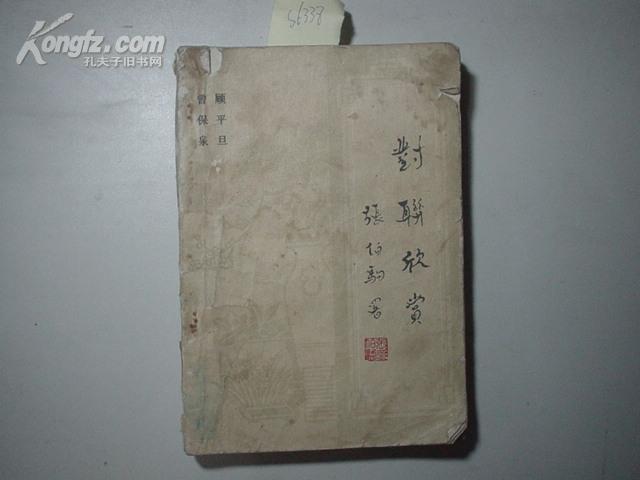 S6338
Kongfz.com
孔夫子旧书网
顾平旦
曾保泉
對聯欣賞
張伯駒署